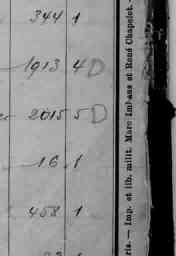 344 1
1913 4 D
2015 5 D
16 1
458 1
ris. — Imp. et lib. milit. Marc Imhaus et René Chapelot.